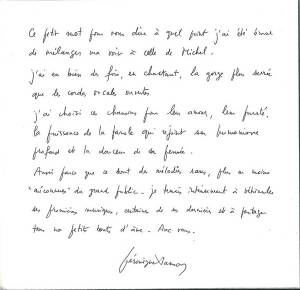 Ce petit mot pour vous dire à quel point j'ai été émue
de mélanger ma voix à celle de Michel.
j'ai eu bien des fois, en chantant, la gorge plus serrée
que les cordes vocales ouvertes
j'ai choisi ces chansons pour leur amour, leur pureté,
la puissance de la parole qui rejoint son humanisme
profond et la douceur de sa pensée.
Aussi parce que ce sont des mélodies rares, plus ou moins
"méconnues" du grand public. je tenais intensément à défendre
ses premières musiques, certaines de ses dernières et à partager
tous nos petits bouts d'âme. Avec vous.
Véronique Sanson